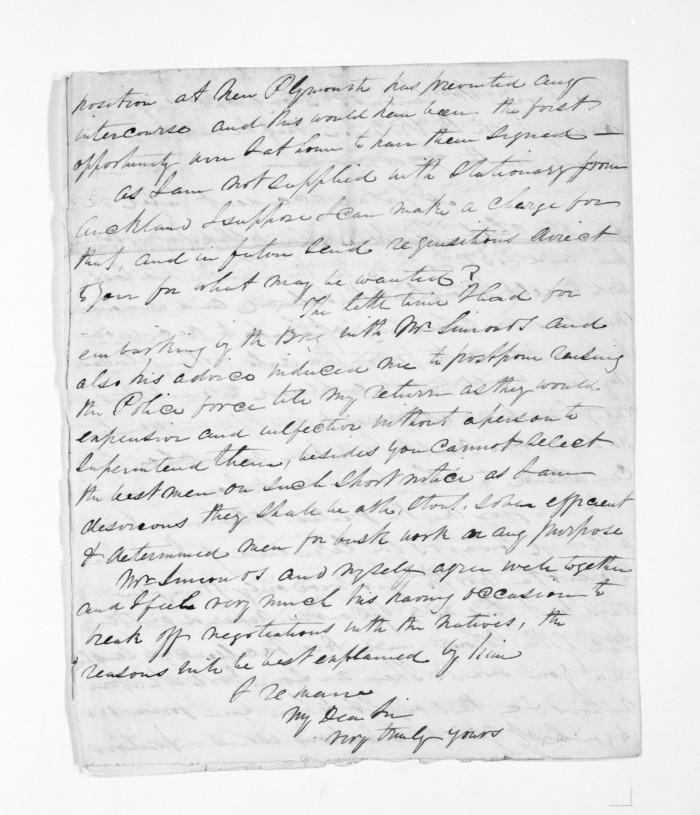 position at New Plymouth has prevented any
intercourse and this would have been the first
opportunity were I at home to have them signed —
as I am not supplied with stationary from
Auckland I suppose I can make a charge for
that, and in future send requisitions direct
to you for what may be wanted?
The little time I had for
embarking by the Brig with Mr Simonds and
also his advice induced me to postpone raising
the Police force till my return as they would
expensive and ineffective without a person to
Superintend them, besides you cannot select
the best men on such short notice as I am
desireous they shall be able, stout, sober efficient
& determined men for work or any purpose
Mr Simonds and myself agree well together
and I feel very much his having occasion to
break off negotiations with the natives, the
reasons will be best explained by him
I remain
My Dear Sir
very truly yours